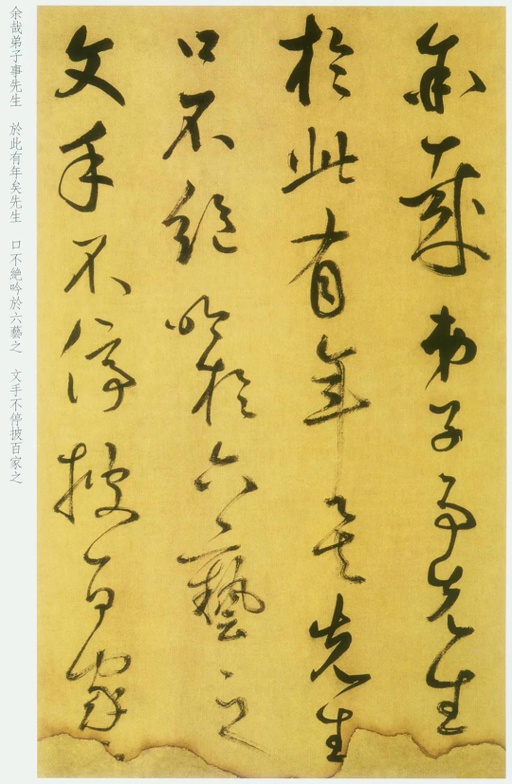 余哉弟子事先生
於此有年矣先生
口不絕吟於六藝之
文手不停披百家之
余哉弟子事先生　於此有年矣先生　口不绝吟於六藝之　文手不停披百家之